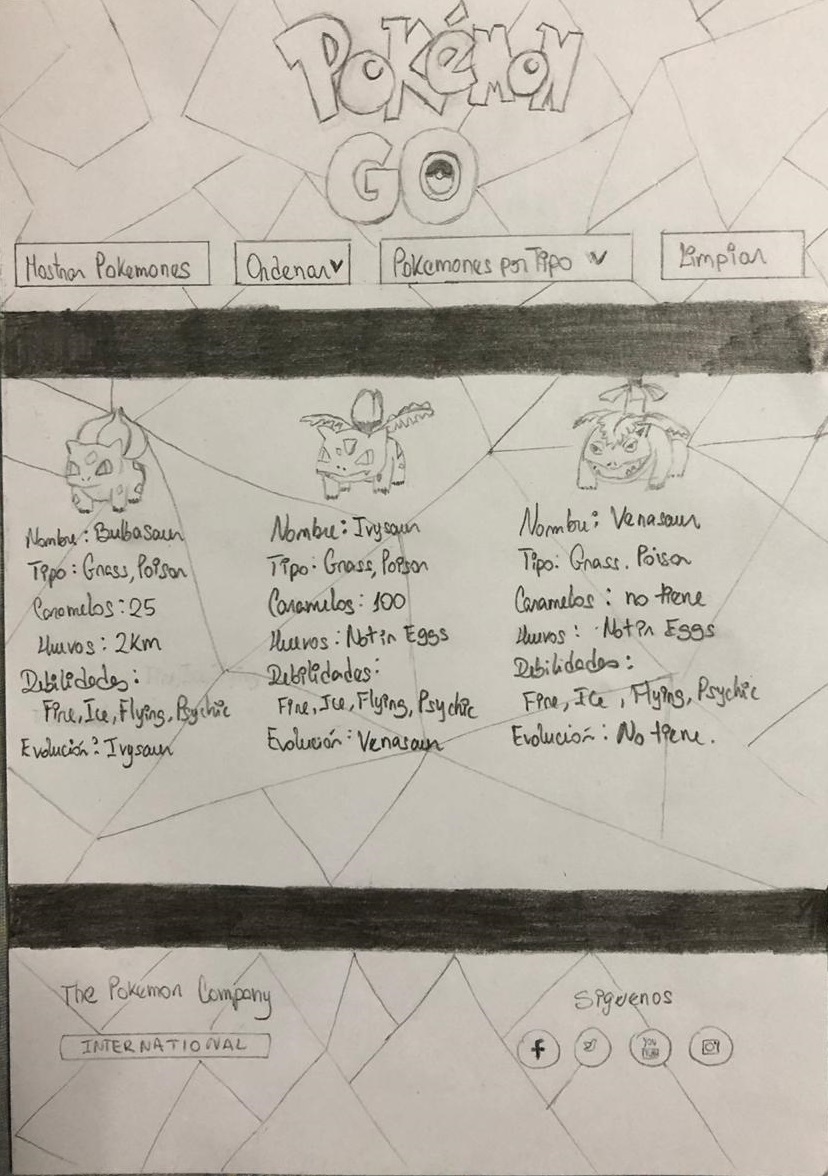 Pokémon
GO
Mostrar Pokemones
Ordenar
Pokemones por Tipo
Limpiar
Nombre: Bulbasaur
Tipo: Grass, Poison
Caramelos: 25
Huevos: 2Km
Debilidades:
Fire, Ice, Flying, Psychic
Evolución: Ivysaur
Nombre: Ivysaur
Tipo: Grass, Poison
Caramelos: 100
Huevos: Not in Eggs
Debilidades:
Fire, Ice, Flying, Psychic
Evolución: Venasaur
Nombre: Venasaur
Tipo: Grass. Poison
Caramelos: no tiene
Huevos: Not in Eggs
Debilidades:
Fire, Ice, Flying, Psychic
Evolución: No tiene.
The Pokemon Company
INTERNATIONAL
Siguenos
f
You
Tube